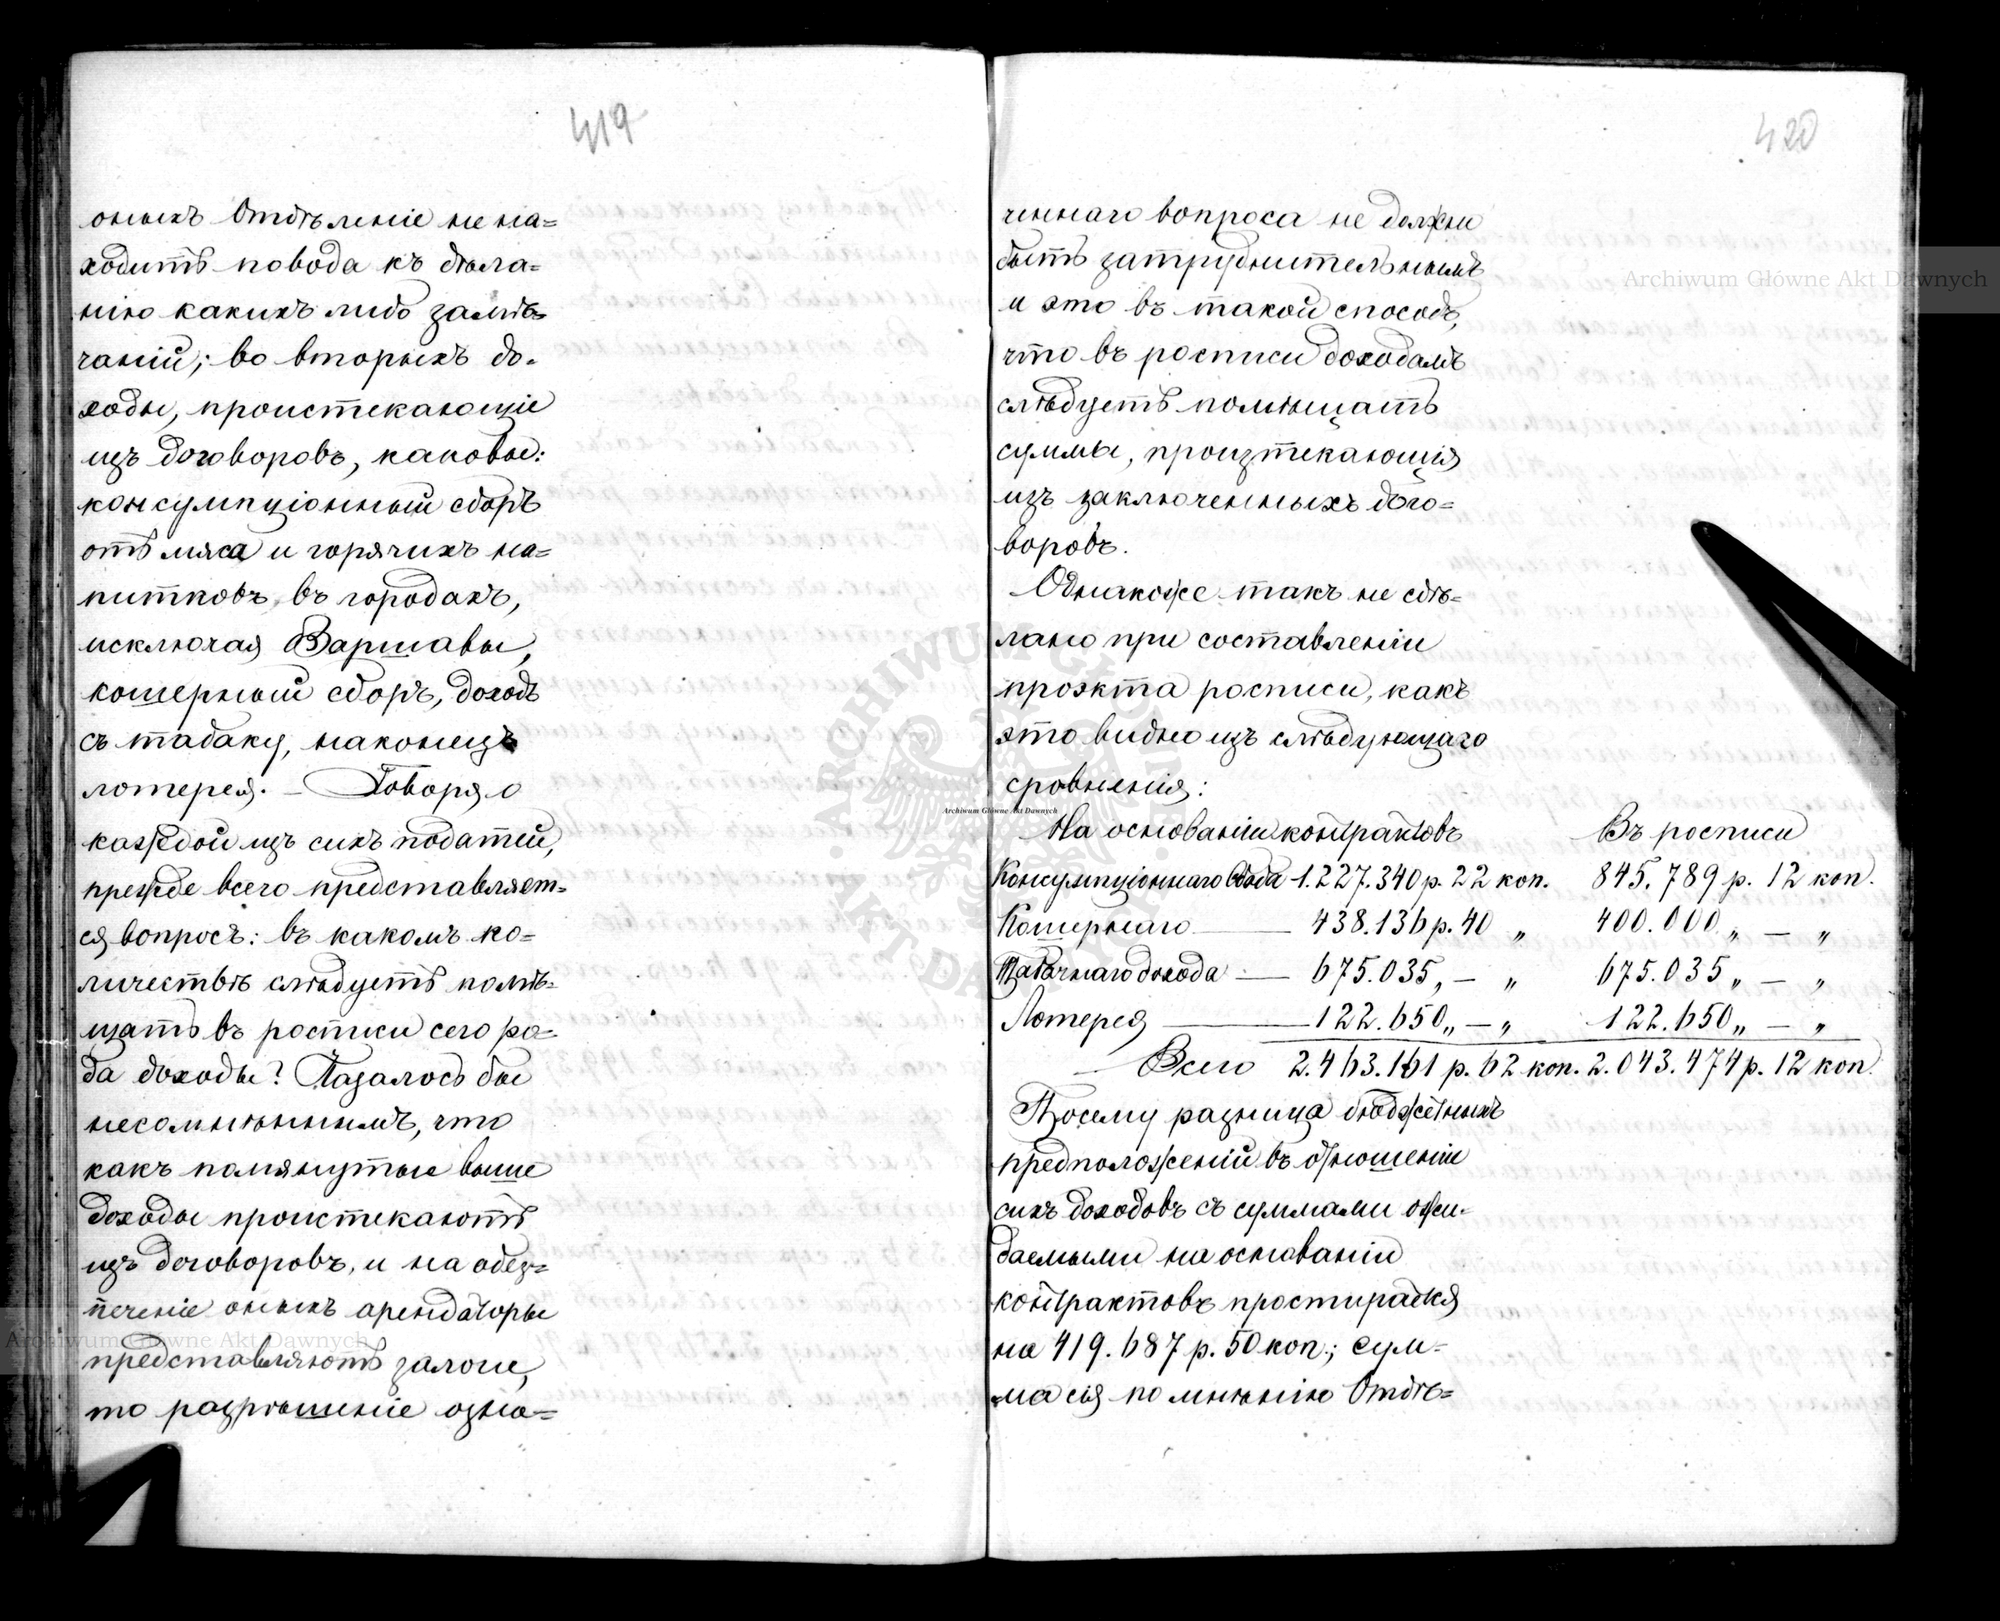 419
оныхъ Отдѣленіе не на=
ходитъ повода къ дѣла=
нію какихъ либо замѣ=
чаній; во вторыхъ до=
ходы, проистекающіе
изъ договоровъ, каковы:
консумпціонный сборъ
отъ мяса и горячихъ на=
питковъ въ городахъ,
исключая Варшавы,
кошерный сборъ, доходъ
съ табаку, наконецъ
лотерея. — Говоря о
каждой изъ сихъ податей,
прежде всего представляет=
ся вопросъ: въ какомъ ко=
личествѣ слѣдуетъ помѣ=
щать въ росписи сего ро=
да доходы? Казалось бы
несомнѣннымъ, что
какъ помянутые выше
доходы проистекаютъ
изъ договоровъ, и на обез=
печеніе оныхъ арендаторы
представляютъ залоги,
то разрѣшеніе озна=
420
ченнаго вопроса не должно
быть затруднительнымъ
и это въ такой способъ,
что въ росписи доходамъ
слѣдуетъ помѣщать
суммы, произтекающія
изъ заключенныхъ дого=
воровъ.
Однакоже такъ не сдѣ=
лано при составленіи
проэкта росписи, какъ
это видно изъ слѣдующаго
сровненія:
На основаніи контрактовъ Въ росписи
Консумпціоннаго сбора 1.227.340 р. 22 коп. 845.789 р. 12 коп.
Кошернаго — 438.136 р. 40 „ 400.000 „ — „
Табачнаго дохода — 675.035 „ — „ 675.035 „ — „
Лотерея — 122.650 „ — „ 122.650 „ — „
Всего 2.463.161 р. 62 коп. 2.043.474 р. 12 коп.
Посему разница бюджетныхъ
предположеній въ отношеніи
сихъ доходовъ съ суммами ожи=
даемыми на основаніи
контрактовъ простирается
на 419.687 р. 50 коп.; сум=
ма сія по мнѣнію Отдѣ=
Archiwum Główne Akt Dawnych
Archiwum Główne Akt Dawnych
Archiwum Główne Akt Dawnych
ARCHIWUM GŁÓWNE AKT DAWNYCH